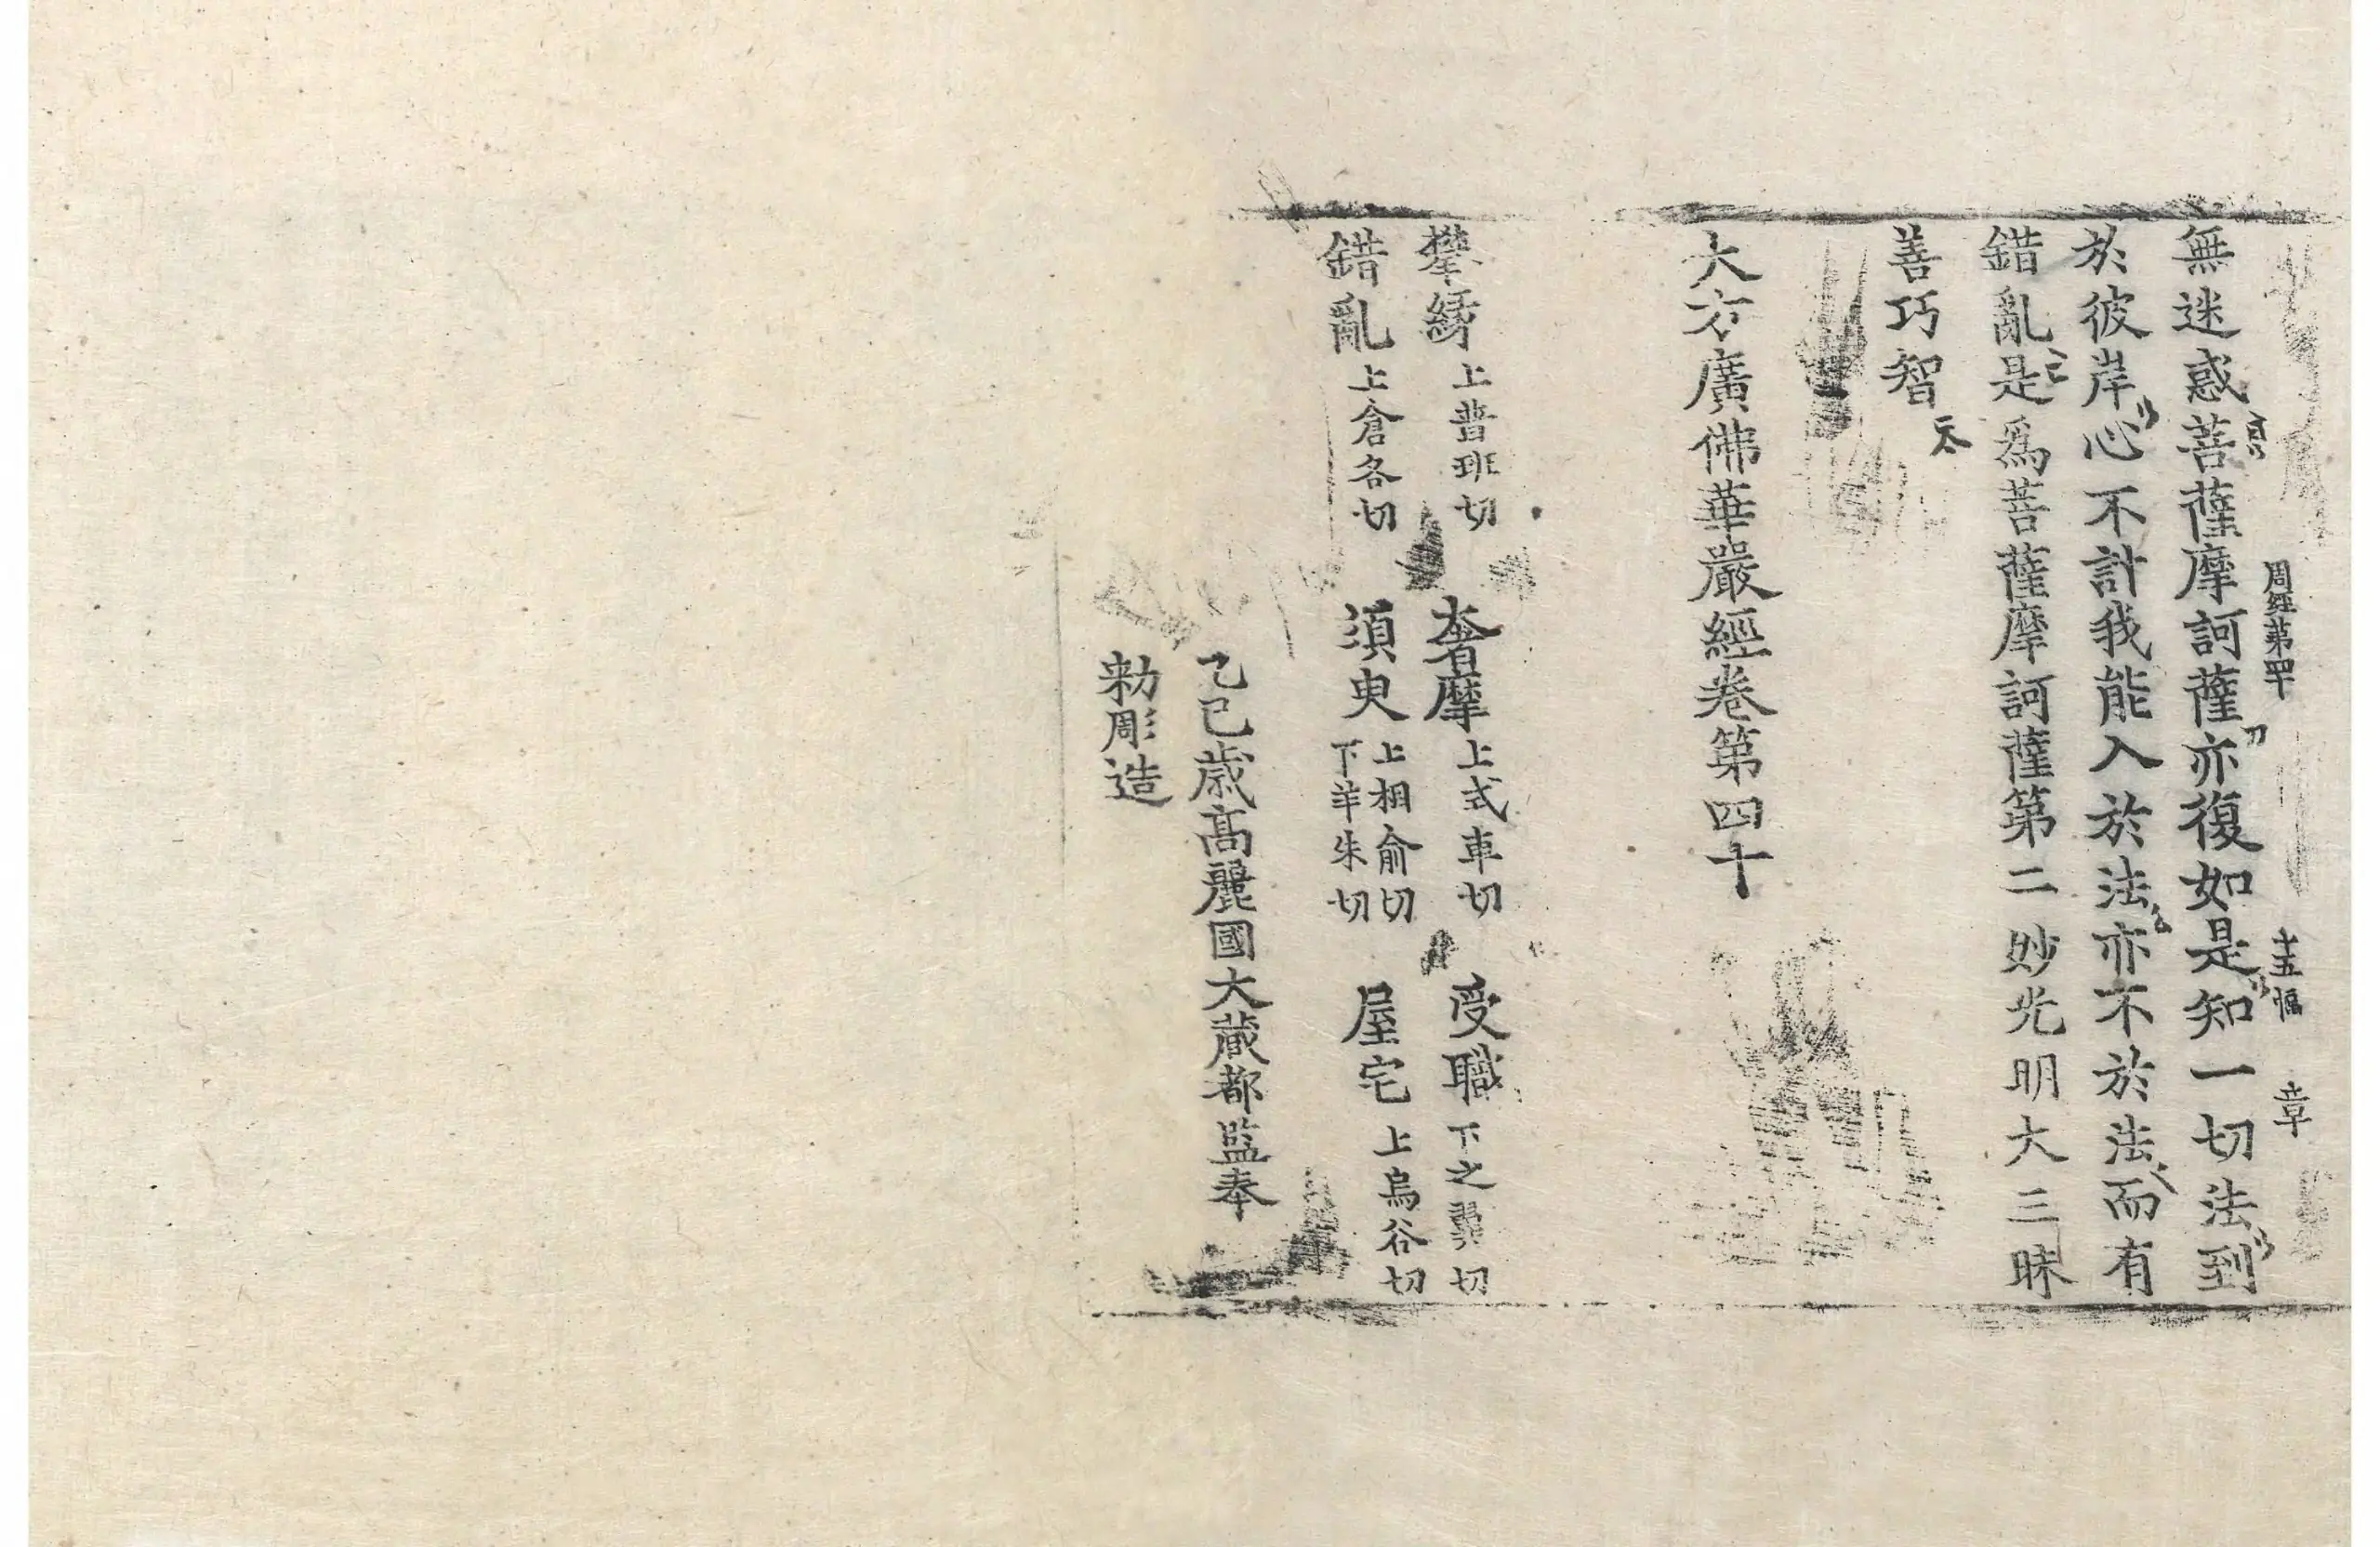 周經第四十 十五幅 章
無迷惑菩薩摩訶薩亦復如是知一切法到
於彼岸心不計我能入於法亦不於法而有
錯亂是爲菩薩摩訶薩第二妙光明大三昧
善巧智
大方廣佛華嚴經卷第四十
攀緣上普班切 奢摩上式車切 受職下之翼切
錯亂上倉各切 須臾上相俞切下羊朱切 屋宅上烏谷切
乙巳歲高麗國大藏都監奉
勅彫造